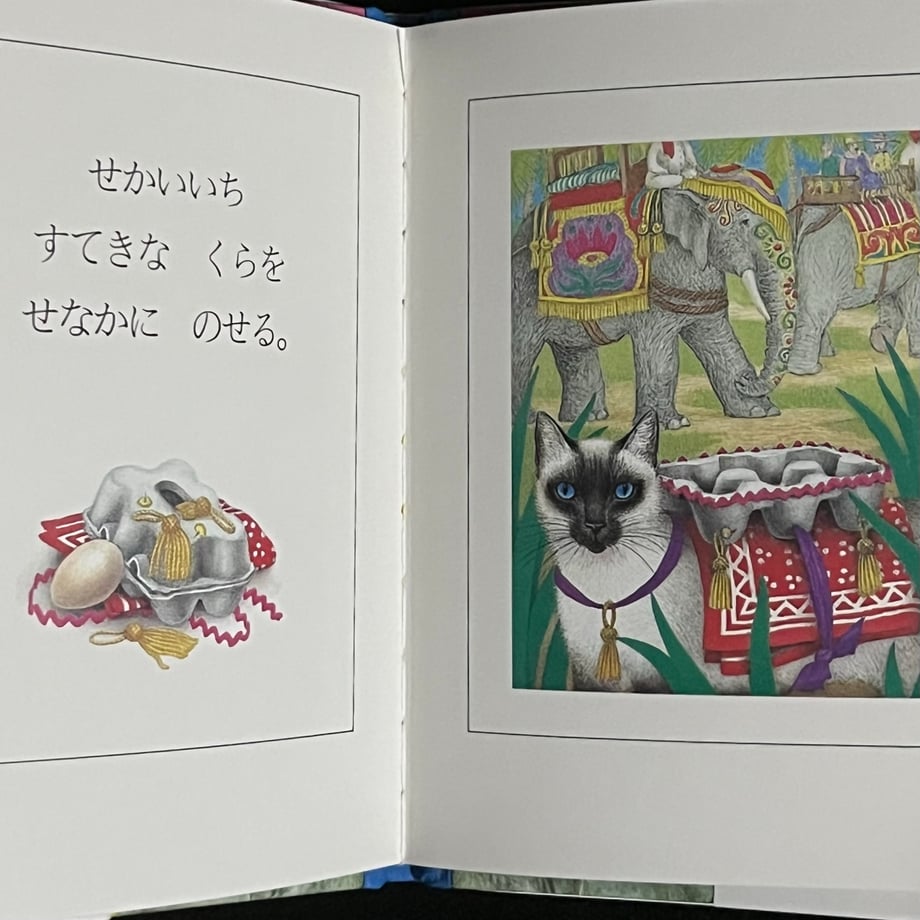 せかいいち
すてきな　くらを
せなかに　のせる。